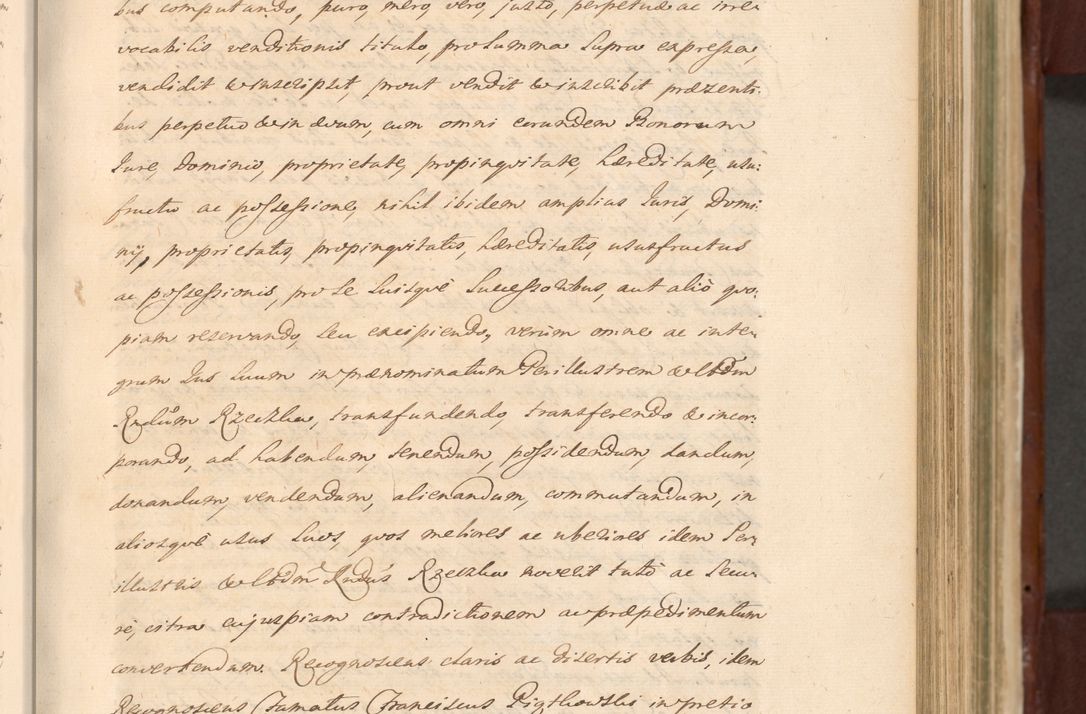 bus computando, puro, mero, vero, justo, perpetuo ac irre-
vocabilis venditionis titulo, pro summa supra expressa,
vendidit & inscripsit, prout vendit & inscribit præzenti-
bus perpetuo & in ævum, cum omni eorundem Bonorum
Jure, Dominio, proprietate, propinqvitate, hæreditate, usu-
fructu ac possessione, nihil ibidem amplius Juris, Domi-
nij, proprietatis, propinqvitatis, hæreditatis, ususfructus
ac possessionis, pro se suisqve successoribus, aut aliò qvo-
piam reservando, seu excipiendo, verùm omne ac inte-
grum Jus suum in prænominatum Perillustrem &
Rndum Rzeczka, transfundendo, transferendo & incor-
porando, ad habendum, tenendum, possidendum, dandum,
donandum, vendendum, alienandum, commutandum, in
aliosqve usus suos, qvos meliores ac uberiores idem Per-
illustris & Rndus Rzeczka noverit tutò ac secu-
rè, citra cujuspiam contradictionem ac præpedimentum
convertendum. Recognoscens claris ac disertis verbis, idem
Recognoscens Gramatus Franciscus in pretio